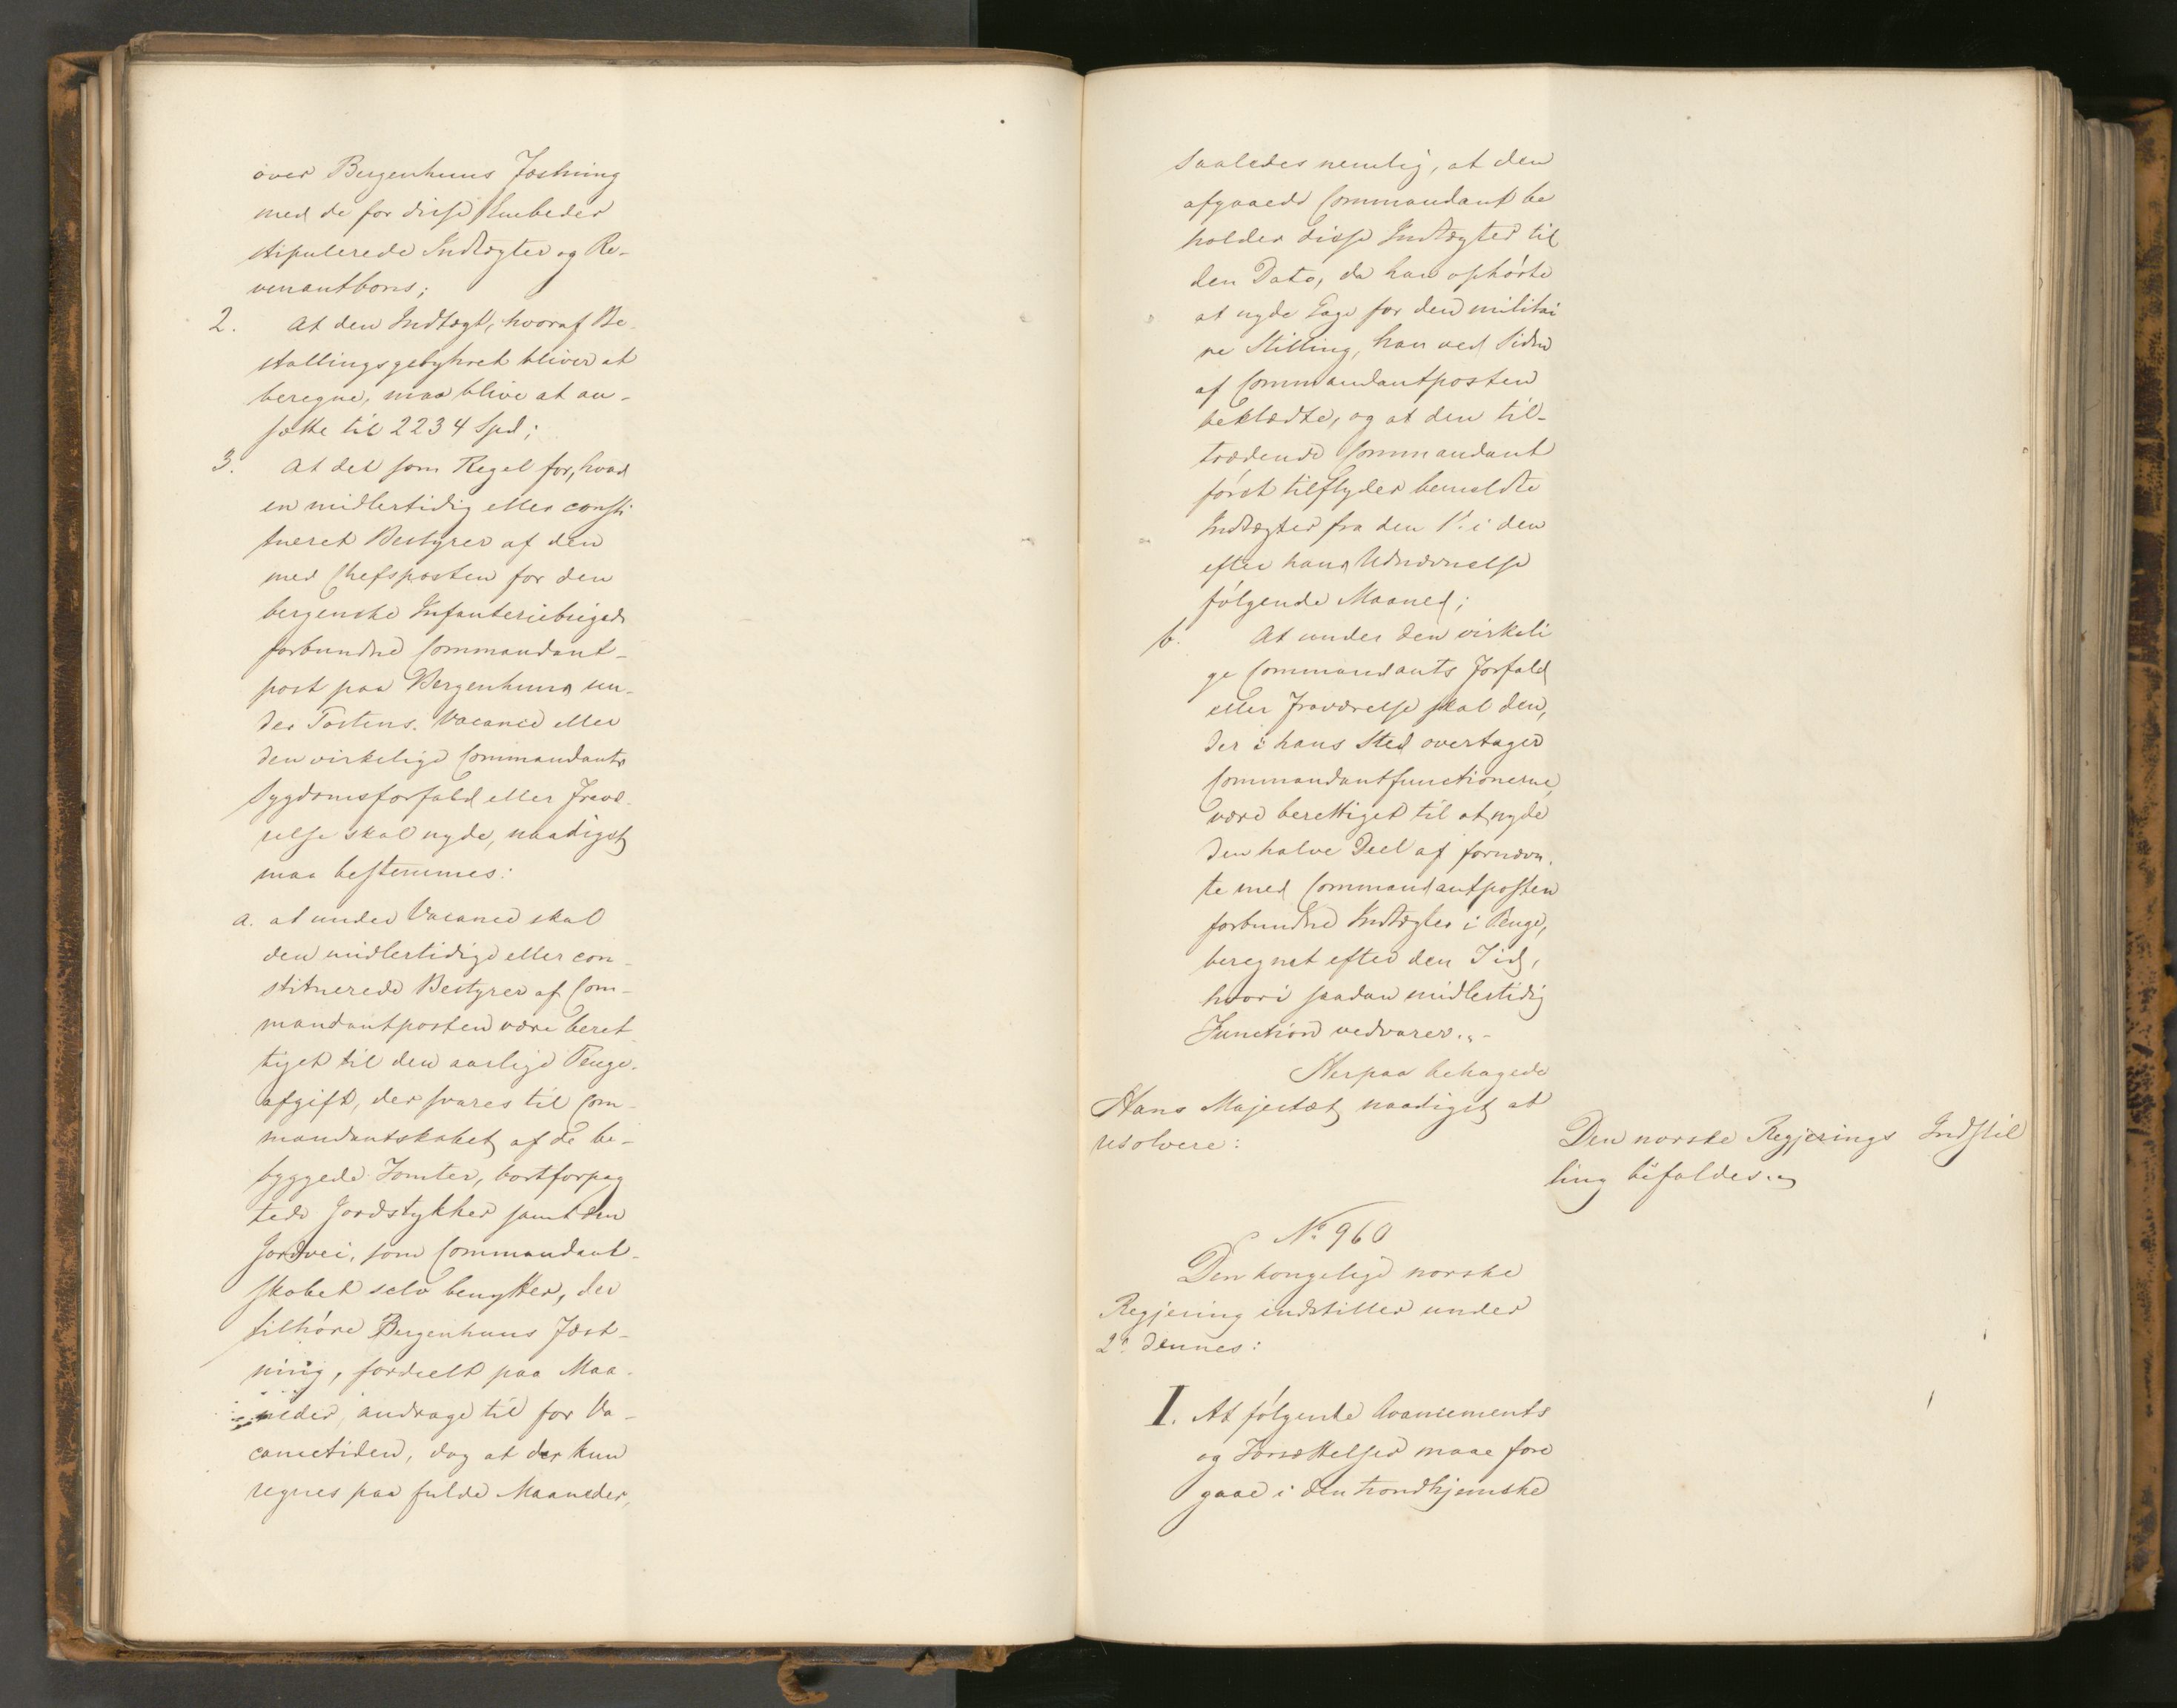 over Bergenhuus Fæstning
med de for disse Embeder
stipulerede Indtægter og Re-
venantbons;
2. At den Indtægt, hvoraf Be-
stallingsgebyhret bliver at
beregne, maa blive at an-
sætte til 2234 Spd;
3. At det som Regel for, hvad
en midlertidig eller consti
tueret Bestyrer af den
med Chefsposten for den
bergenske Infanteriebrigade
forbundne Commandant-
post paa Bergenhuus un-
der Postens Vacance eller
den virkelige Commandants
Sygdomsforfald eller Fravæ-
relse skal nyde, naadigst
maa bestemmes:
a. at under Vacance skal
den midlertidige eller con-
stituerede Bestyrer af Com-
mandantposten være beret-
tiget til den aarlige Penge-
afgift, der svares til Com-
mandantskabet af de be-
byggede Tomter, bortforpag
tede Jordstykker samt den
Jordvei, som Commandant-
skabet selv benytter, der
tilhöre Bergenhuus Fæst-
ning, fordeelt paa Maa-
neder, andrage til for Va-
cancetiden, dog at der kun
regnes paa fulde Maaneder,
saaledes nemlig, at den
afgaaede Commandant be
holder disse Indtægter til
den Dato, da han ophörte
at nyde Gage for den militai
re Stilling, han ved Siden
af Commandantposten
beklædte, og at den til-
trædende Commandant
först tilflyder bemeldte
Indtægter fra den 1ste i den
efter hans Udnævnelse
fölgende Maaned;
b. At under den virkeli
ge Commandants Forfald
eller Fraværelse skal den,
der i hans Sted overtager
Commandantfunctionerne,
være berettiget til at nyde
den halve Deel af fornævn-
te med Commandantposten
forbundne Indtægter i Penge,
beregnet efter den Tid,
hvori saadan midlertidig
Function vedvarer.„-
Herpaa behagede
Hans Majestæt naadigst at
resolvere:
Den norske Regjerings Indstil
ling bifaldes.„
No 960
Den kongelige norske
Regjering indstiller under
2n dennes:
I. At fölgende Avancements
og Forsættelser maae fore
gaae i den trondhjemske